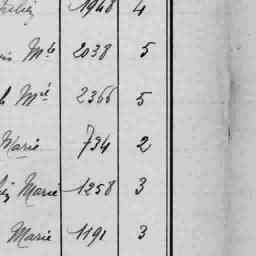 1948 4
Mle 2038 5
Mie 2366 5
Marie 734 2
Marie 1258 3
Marie 1191 3